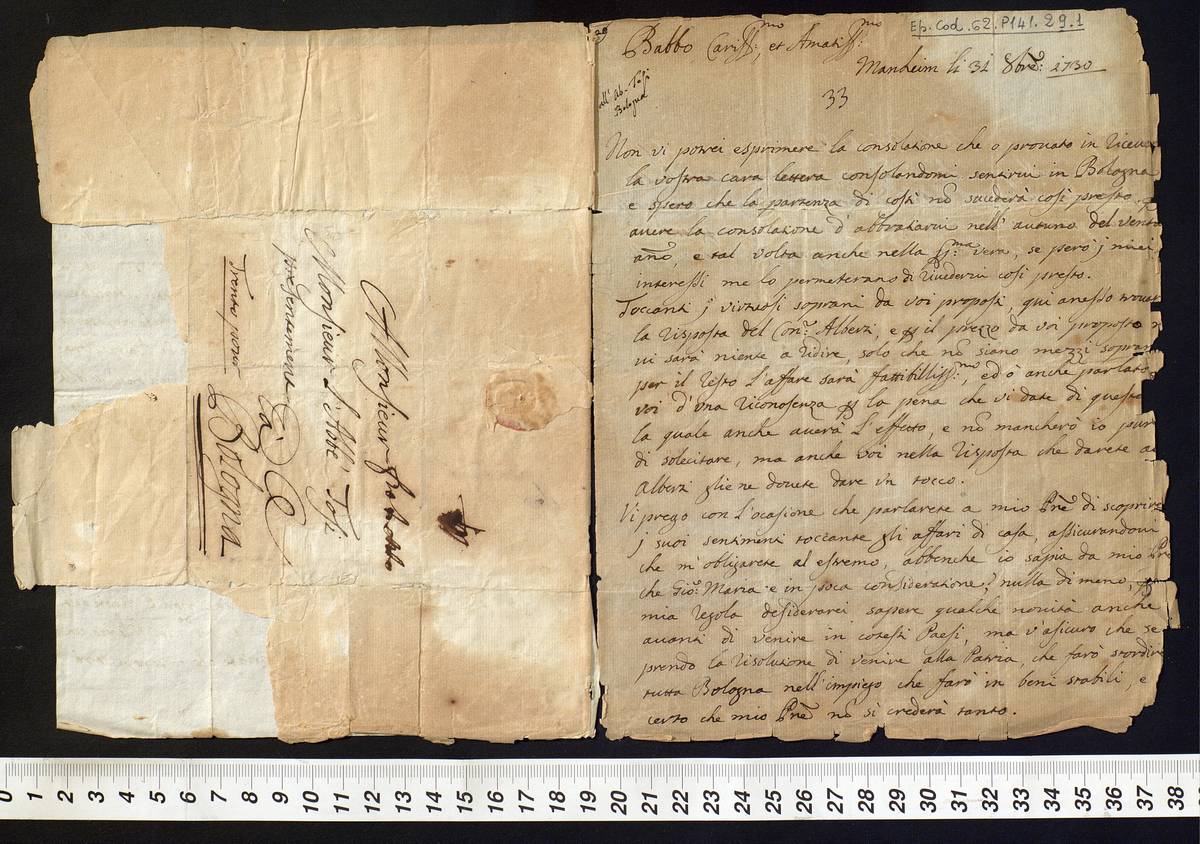 Ep. Cod. 62. P141. 29.1
Babbo Cariss:mo et Amatiss:mo
Manheim li 31 8bre: 1730
all' Ab. Tosi
Bologna
33
Non vi potrei esprimere la consolatione che o prouato in
la vostra cara lettera consolandomi sentirui in Bologna
e spero che la partenza di costì nō succederà così presto
auere la consolatione d'abbratiarui nell'autuno del
año, e tal volta anche nella vera, se però j miei
interessi me lo permeterano di Riuederui così presto.
Toccanti j virtuosi soprani da voi proposti, qui anesso
la Risposta del Con:e Alberti, e il prezzo da voi proposto
vi sarà niente a Ridire, solo che nō siano mezzi soprani
per il Resto l'affare sarà fattibilliss:mo, ed ò anche parlato
voi d'una Riconosenza la pena che vi date di questo
la quale anche auerà l'effetto, e nō mancherò io pure
di solecitare, ma anche voi nella Risposta che darete a
Alberti gliene douete dare in tocco.
Vi prego con l'ocasione che parlarete a mio Pre di scoprire
j suoi sentimenti toccante gli affari di casa, assicurandoui
che m'obligarete al estremo, abbenche io sapia da mio Pre
che Gio: Maria e in poca consideratione, nulla di meno,
mia regola desiderarei sapere qualche nouità anche
auanti di venire in cotesti Paesi, ma v'asicuro che se
prendo la Risolutione di venire alla Patria, che farò stordire
tutta Bologna nell'impiego che farò in beni stabili, e
certo che mio Pre nō si crederà tanto.
A Monsieur
Monsieur l'Abbé Tosi
presentement
à
Bologna